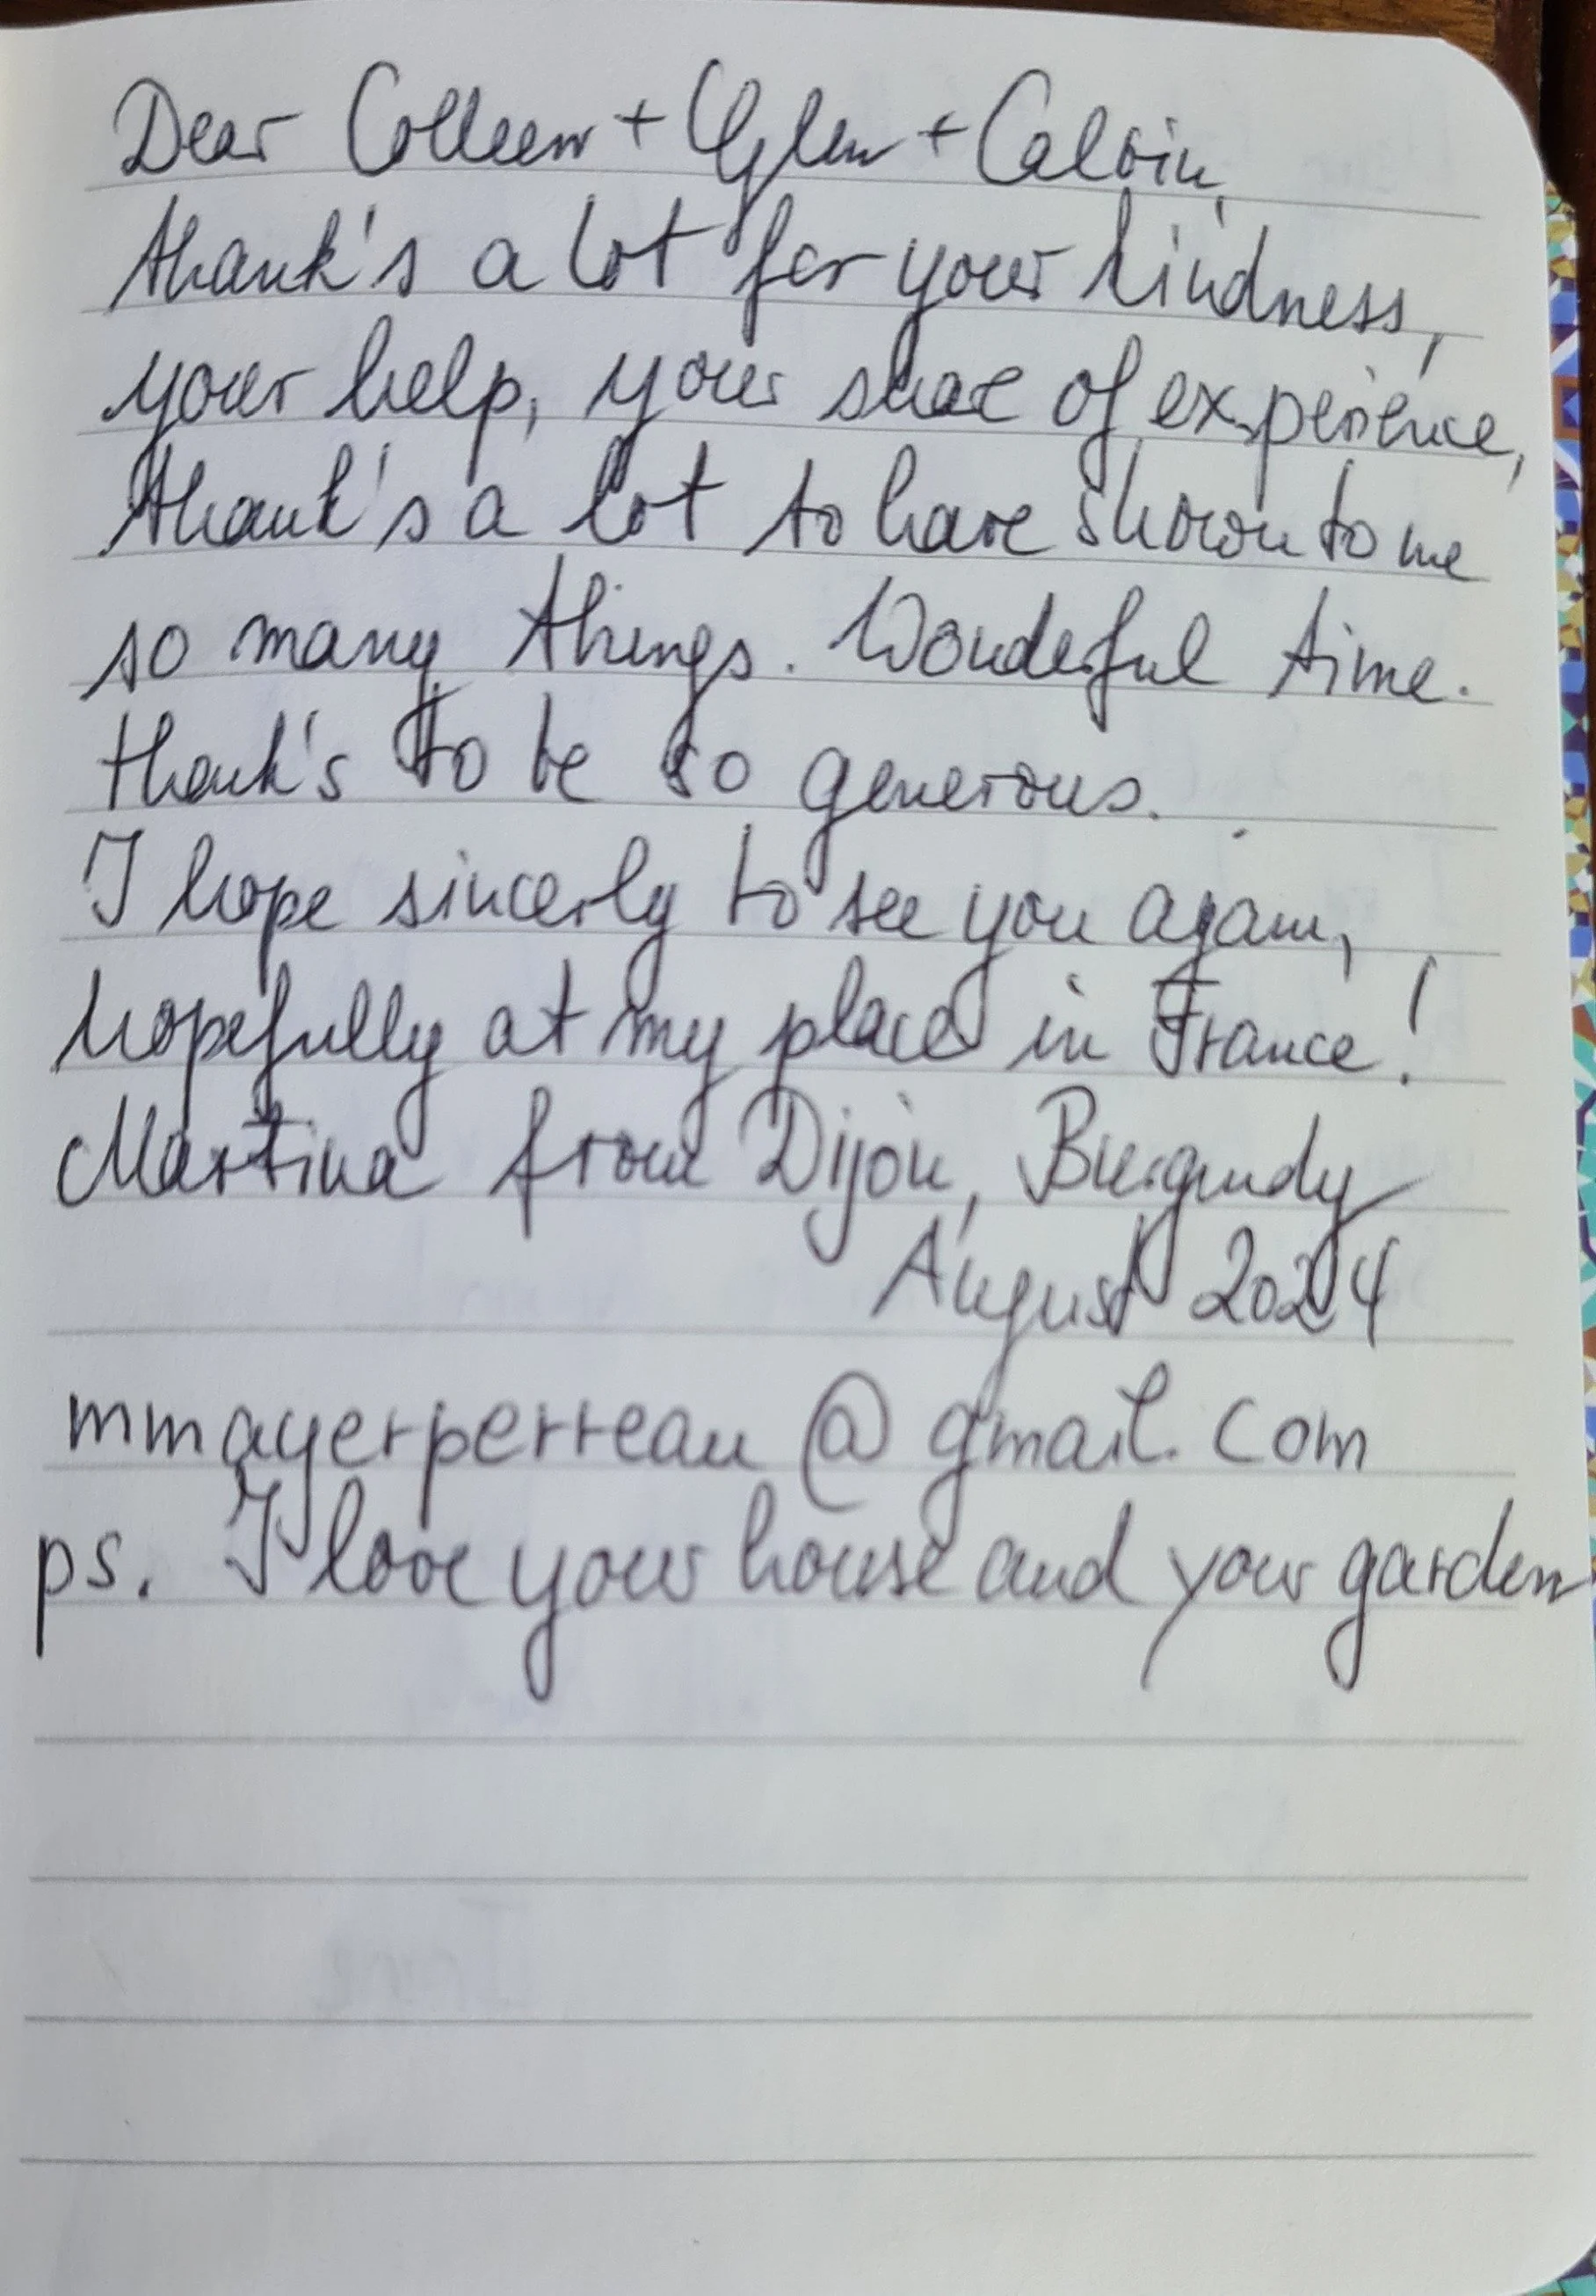 Dear Colleen + Glen + Calvin,
thank's a lot for your kindness,
your help, your share of experience,
thank's a lot to have shown to me
so many things. Wonderful time.
thank's to be so generous.
I hope sincerly to see you again,
hopefully at my place in France!
Martina from Dijon, Burgundy
August 2024
mmayerperreau@gmail.com
ps. I love your house and your garden